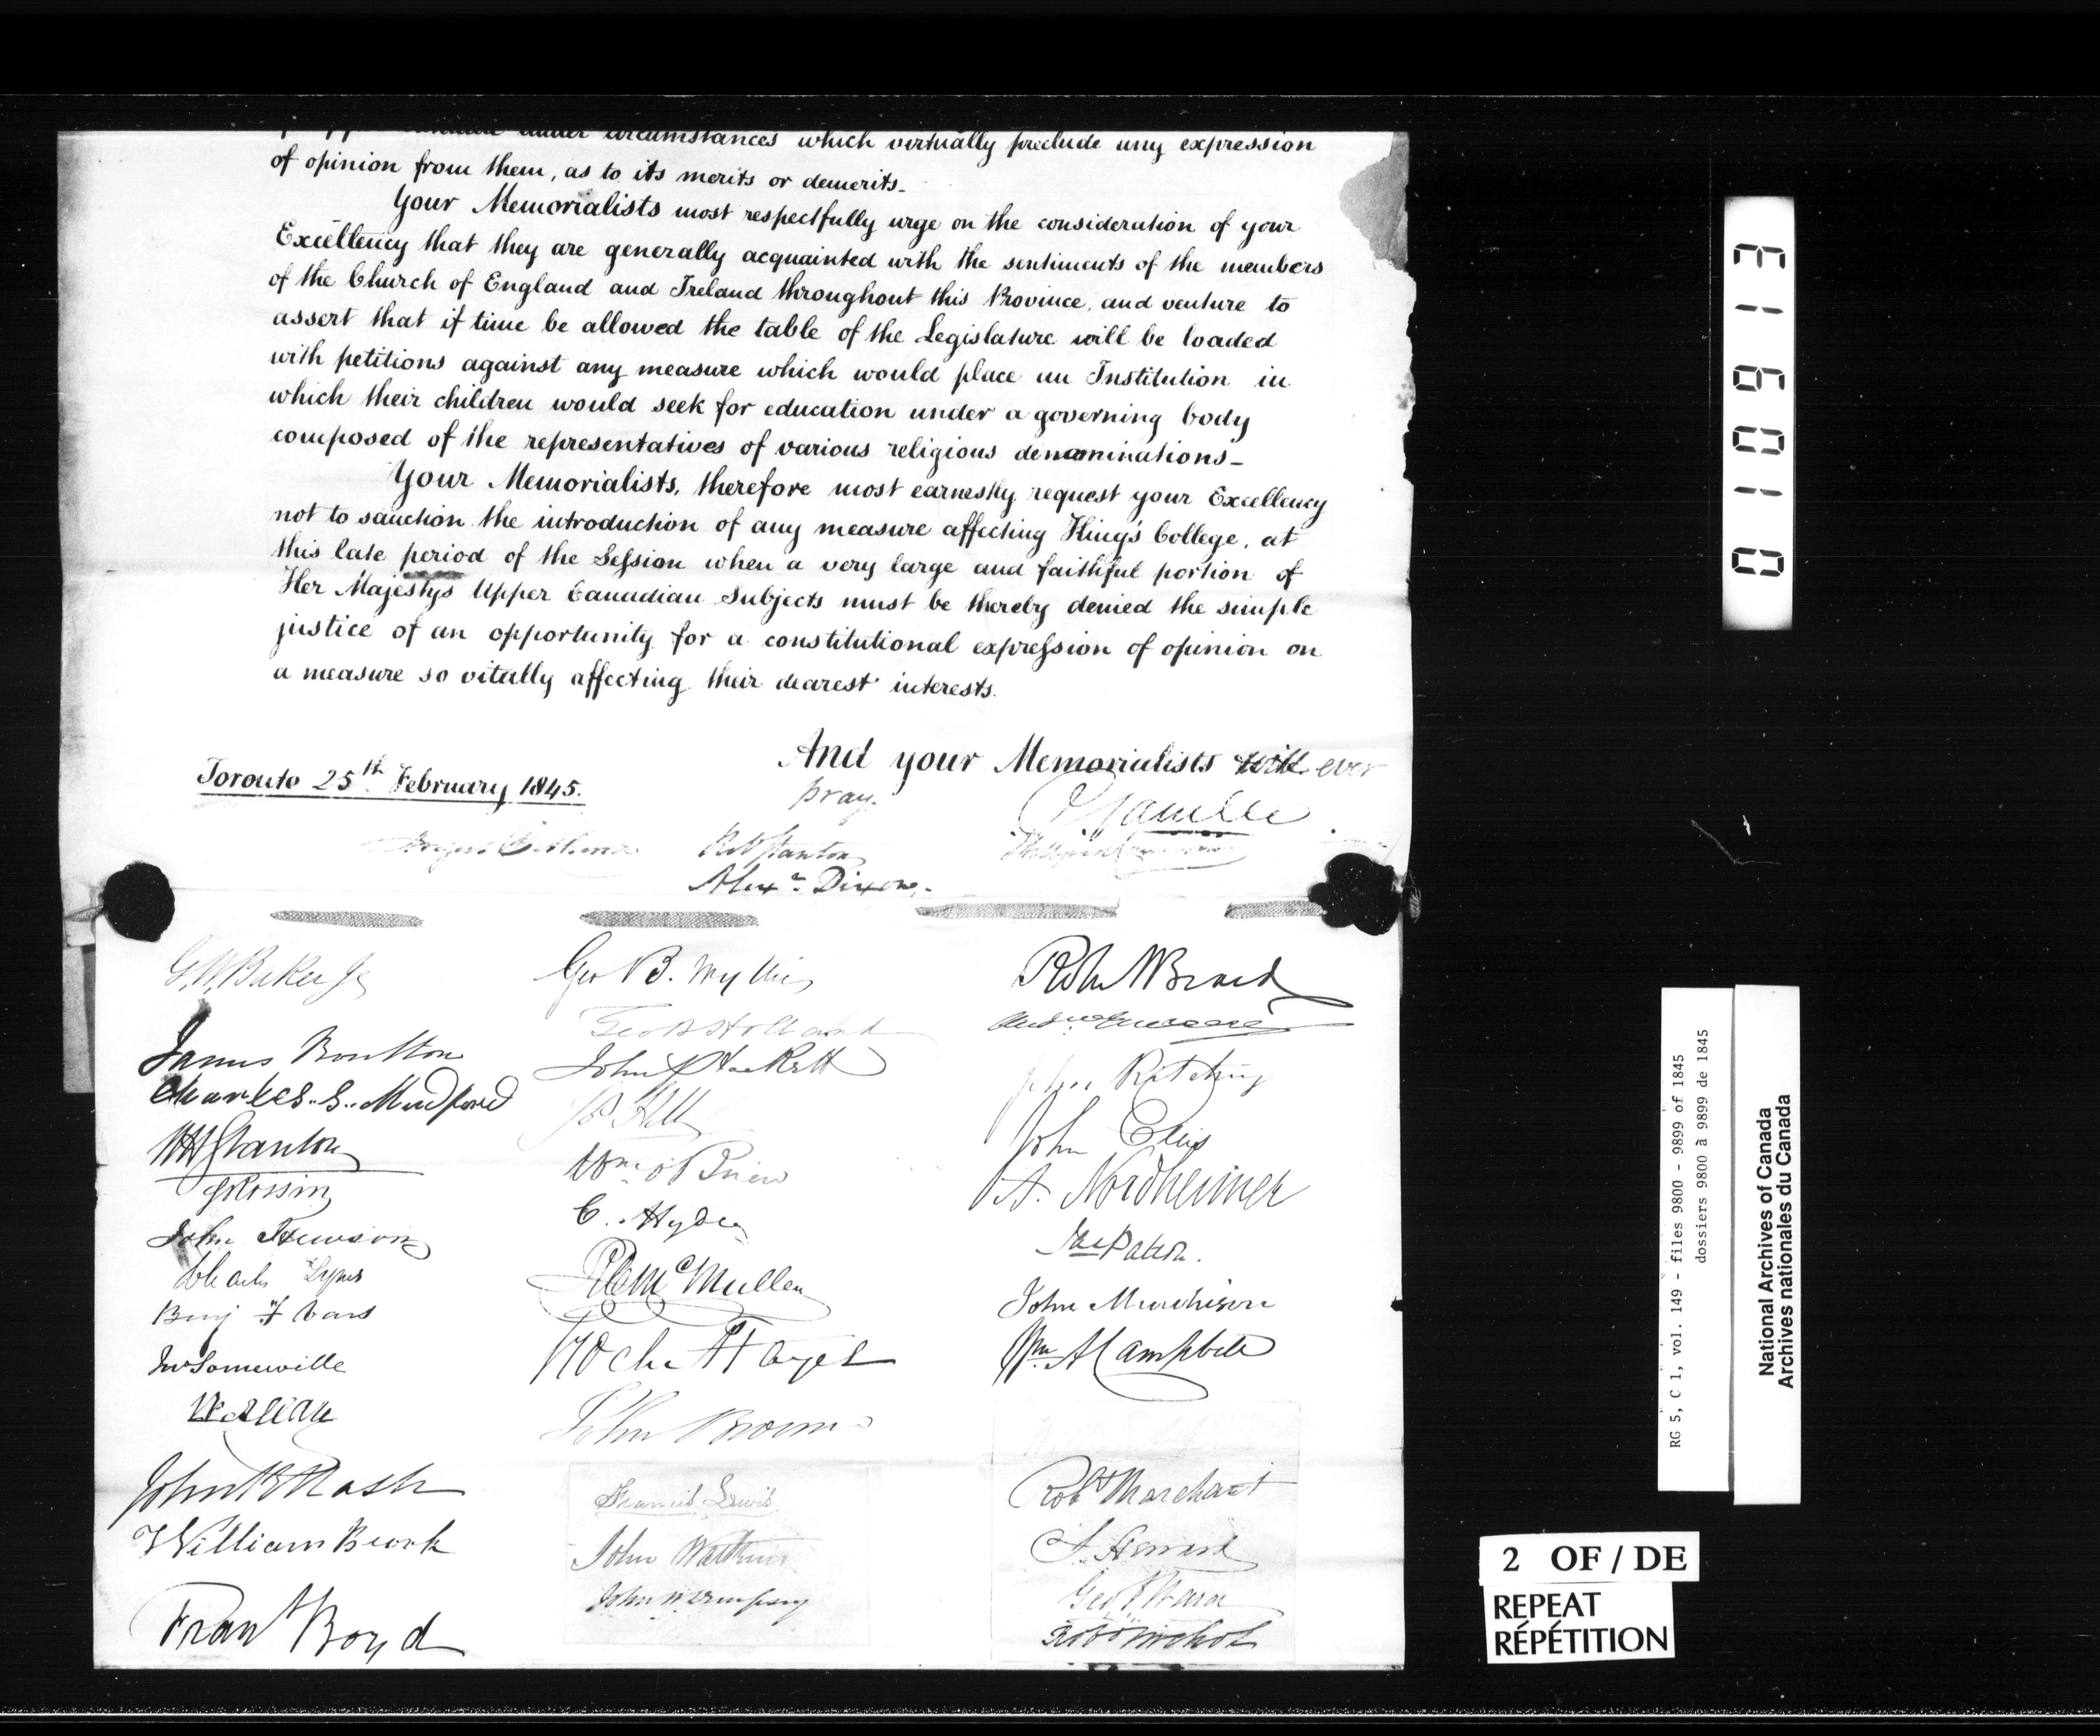 under circumstances which virtually preclude any expression
of opinion from them, as to its merits or demerits_
Your Memorialists most respectfully urge on the consideration of your
Excellency that they are generally acquainted with the sentiments of the members
of the Church of England and Ireland throughout this Province, and venture to
assert that if time be allowed the table of the Legislature will be loaded
with petitions against any measure which would place an Institution in
which their children would seek for education under a governing body
composed of the representatives of various religious denominations_
Your Memorialists, therefore most earnestly request your Excellency
not to sanction the introduction of any measure affecting King's College, at
this late period of the Session when a very large and faithful portion of
Her Majestys Upper Canadian Subjects must be thereby denied the simple
justice of an opportunity for a constitutional expression of opinion on
a measure so vitally affecting their dearest interests.
And your Memorialists will ever
pray.
Toronto 25th February 1845.
C Gamble
Angus Bethune
Rob Stanton
Alexr Dixon.
G. W. Baker Jr
Geo B. Wyllie
James Boulton
Geo B Holland
Charles. S. Mudford
John Hackett
John Ritchey
W H Stanton
J Hill
John Ellis
Wm O'Brien
A. Nordheimer
John Hewson
C. Hyde
Charles Lynes
McMullen
John Murchison
Jno Somerville
Wm A Campbell
John Brown
John B Nash
Francis Lewis
Robt Marchant
William
John
Frans Boyd
John Dempsey
3
1
6
0
1
0
RG 5, C 1, vol. 149 - files 9800 - 9899 of 1845
dossiers 9800 à 9899 de 1845
National Archives of Canada
Archives nationales du Canada
2 OF / DE
REPEAT
RÉPÉTITION